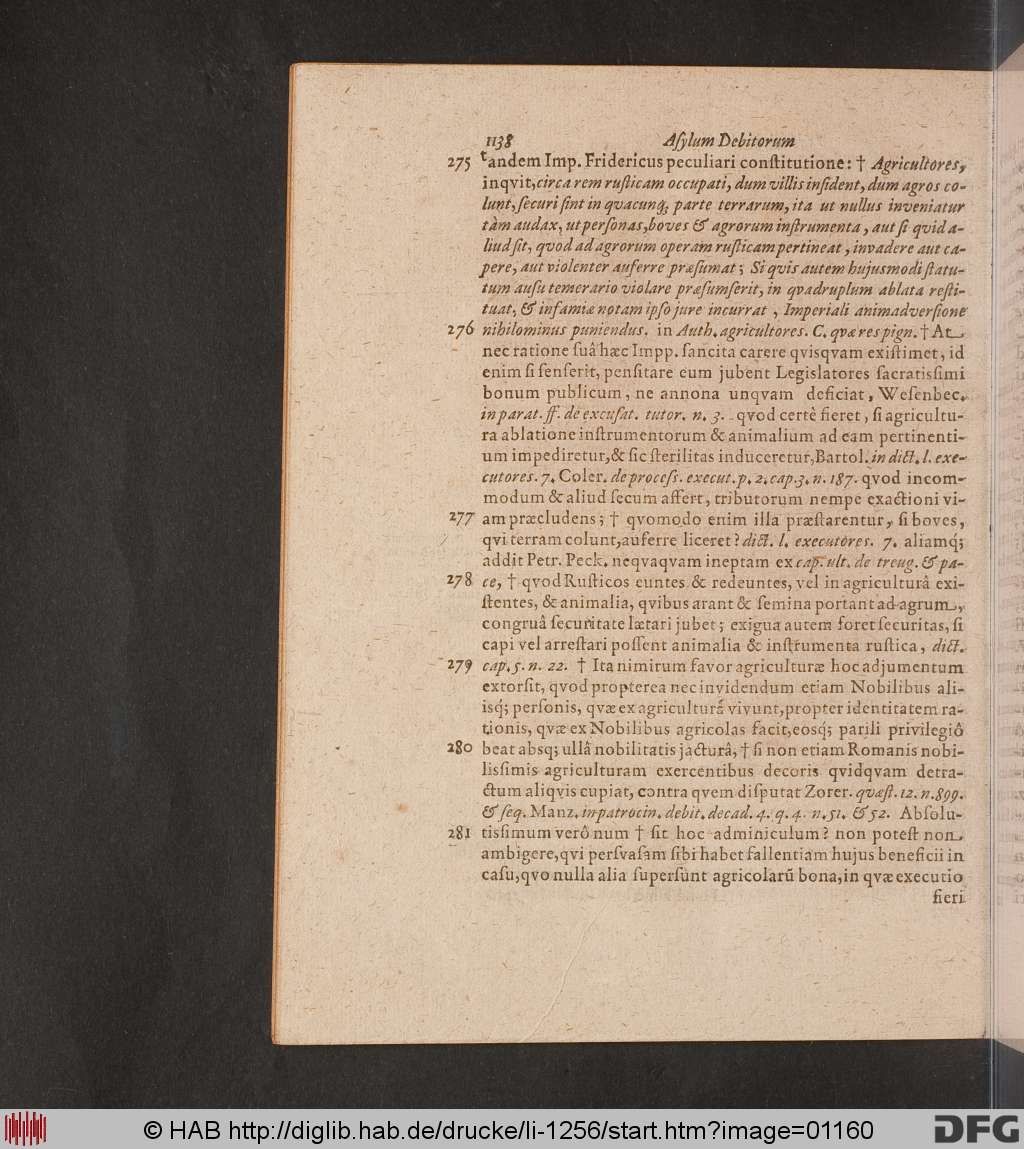 1138 Aſylum Debitorum
275 tandem Imp. Fridericus peculiari conſtitutione: † Agricultores,
inqvit, circa rem ruſticam occupati, dum villis inſident, dum agros co-
lunt, ſecuri ſint in qvacunq; parte terrarum, ita ut nullus inveniatur
tàm audax, ut perſonas, boves & agrorum inſtrumenta, aut ſi qvid a-
liud ſit, qvod ad agrorum operam ruſticam pertineat, invadere aut ca-
pere, aut violenter auferre præſumat; Si qvis autem hujusmodi ſtatu-
tum auſu temerario violare præſumſerit, in qvadruplum ablata reſti-
tuat, & infamiæ notam ipſo jure incurrat, Imperiali animadverſione
276 nihilominus puniendus. in Auth. agricultores. C. qvæ res pign. † At
nec ratione ſuâ hæc Impp. ſancita carere qviſqvam exiſtimet, id
enim ſi ſenſerit, penſitare eum jubent Legislatores ſacratisſimi
bonum publicum, ne annona unqvam deficiat, Weſenbec.
in parat. ff. de excuſat. tutor. n. 3. qvod certè fieret, ſi agricultu-
ra ablatione inſtrumentorum & animalium ad eam pertinenti-
um impediretur, & ſic ſterilitas induceretur, Bartol. in dict. l. exe-
cutores. 7. Coler. de proceſs. execut. p. 2. cap. 3. n. 187. qvod incom-
modum & aliud ſecum affert, tributorum nempe exactioni vi-
277 am præcludens; † qvomodo enim illa præſtarentur, ſi boves,
qvi terram colunt, auferre liceret? dict. l. executores. 7. aliamq;
addit Petr. Peck. neqvaqvam ineptam ex cap. ult. de treug. & pa-
278 ce, † qvod Ruſticos euntes & redeuntes, vel in agriculturâ exi-
ſtentes, & animalia, qvibus arant & ſemina portant ad agrum,
congruâ ſecuritate lætari jubet; exigua autem foret ſecuritas, ſi
capi vel arreſtari poſſent animalia & inſtrumenta ruſtica, dict.
279 cap. 5. n. 22. † Ita nimirum favor agriculturæ hoc adjumentum
extorſit, qvod propterea nec invidendum etiam Nobilibus ali-
isq; perſonis, qvæ ex agriculturâ vivunt, propter identitatem ra-
tionis, qvæ ex Nobilibus agricolas facit, eosq; parili privilegiô
280 beat absq; ullâ nobilitatis jacturâ, † ſi non etiam Romanis nobi-
lisſimis agriculturam exercentibus decoris qvidqvam detra-
ctum aliqvis cupiat, contra qvem diſputat Zorer. qvæſt. 12. n. 899.
& ſeq. Manz. in patrocin. debit. decad. 4. q. 4. n. 51. & 52. Abſolu-
281 tisſimum verô num † ſit hoc adminiculum? non poteſt non
ambigere, qvi perſvaſam ſibi habet fallentiam hujus beneficii in
caſu, qvo nulla alia ſuperſunt agricolarũ bona, in qvæ executio
fieri
© HAB http://diglib.hab.de/drucke/li-1256/start.htm?image=01160
DFG